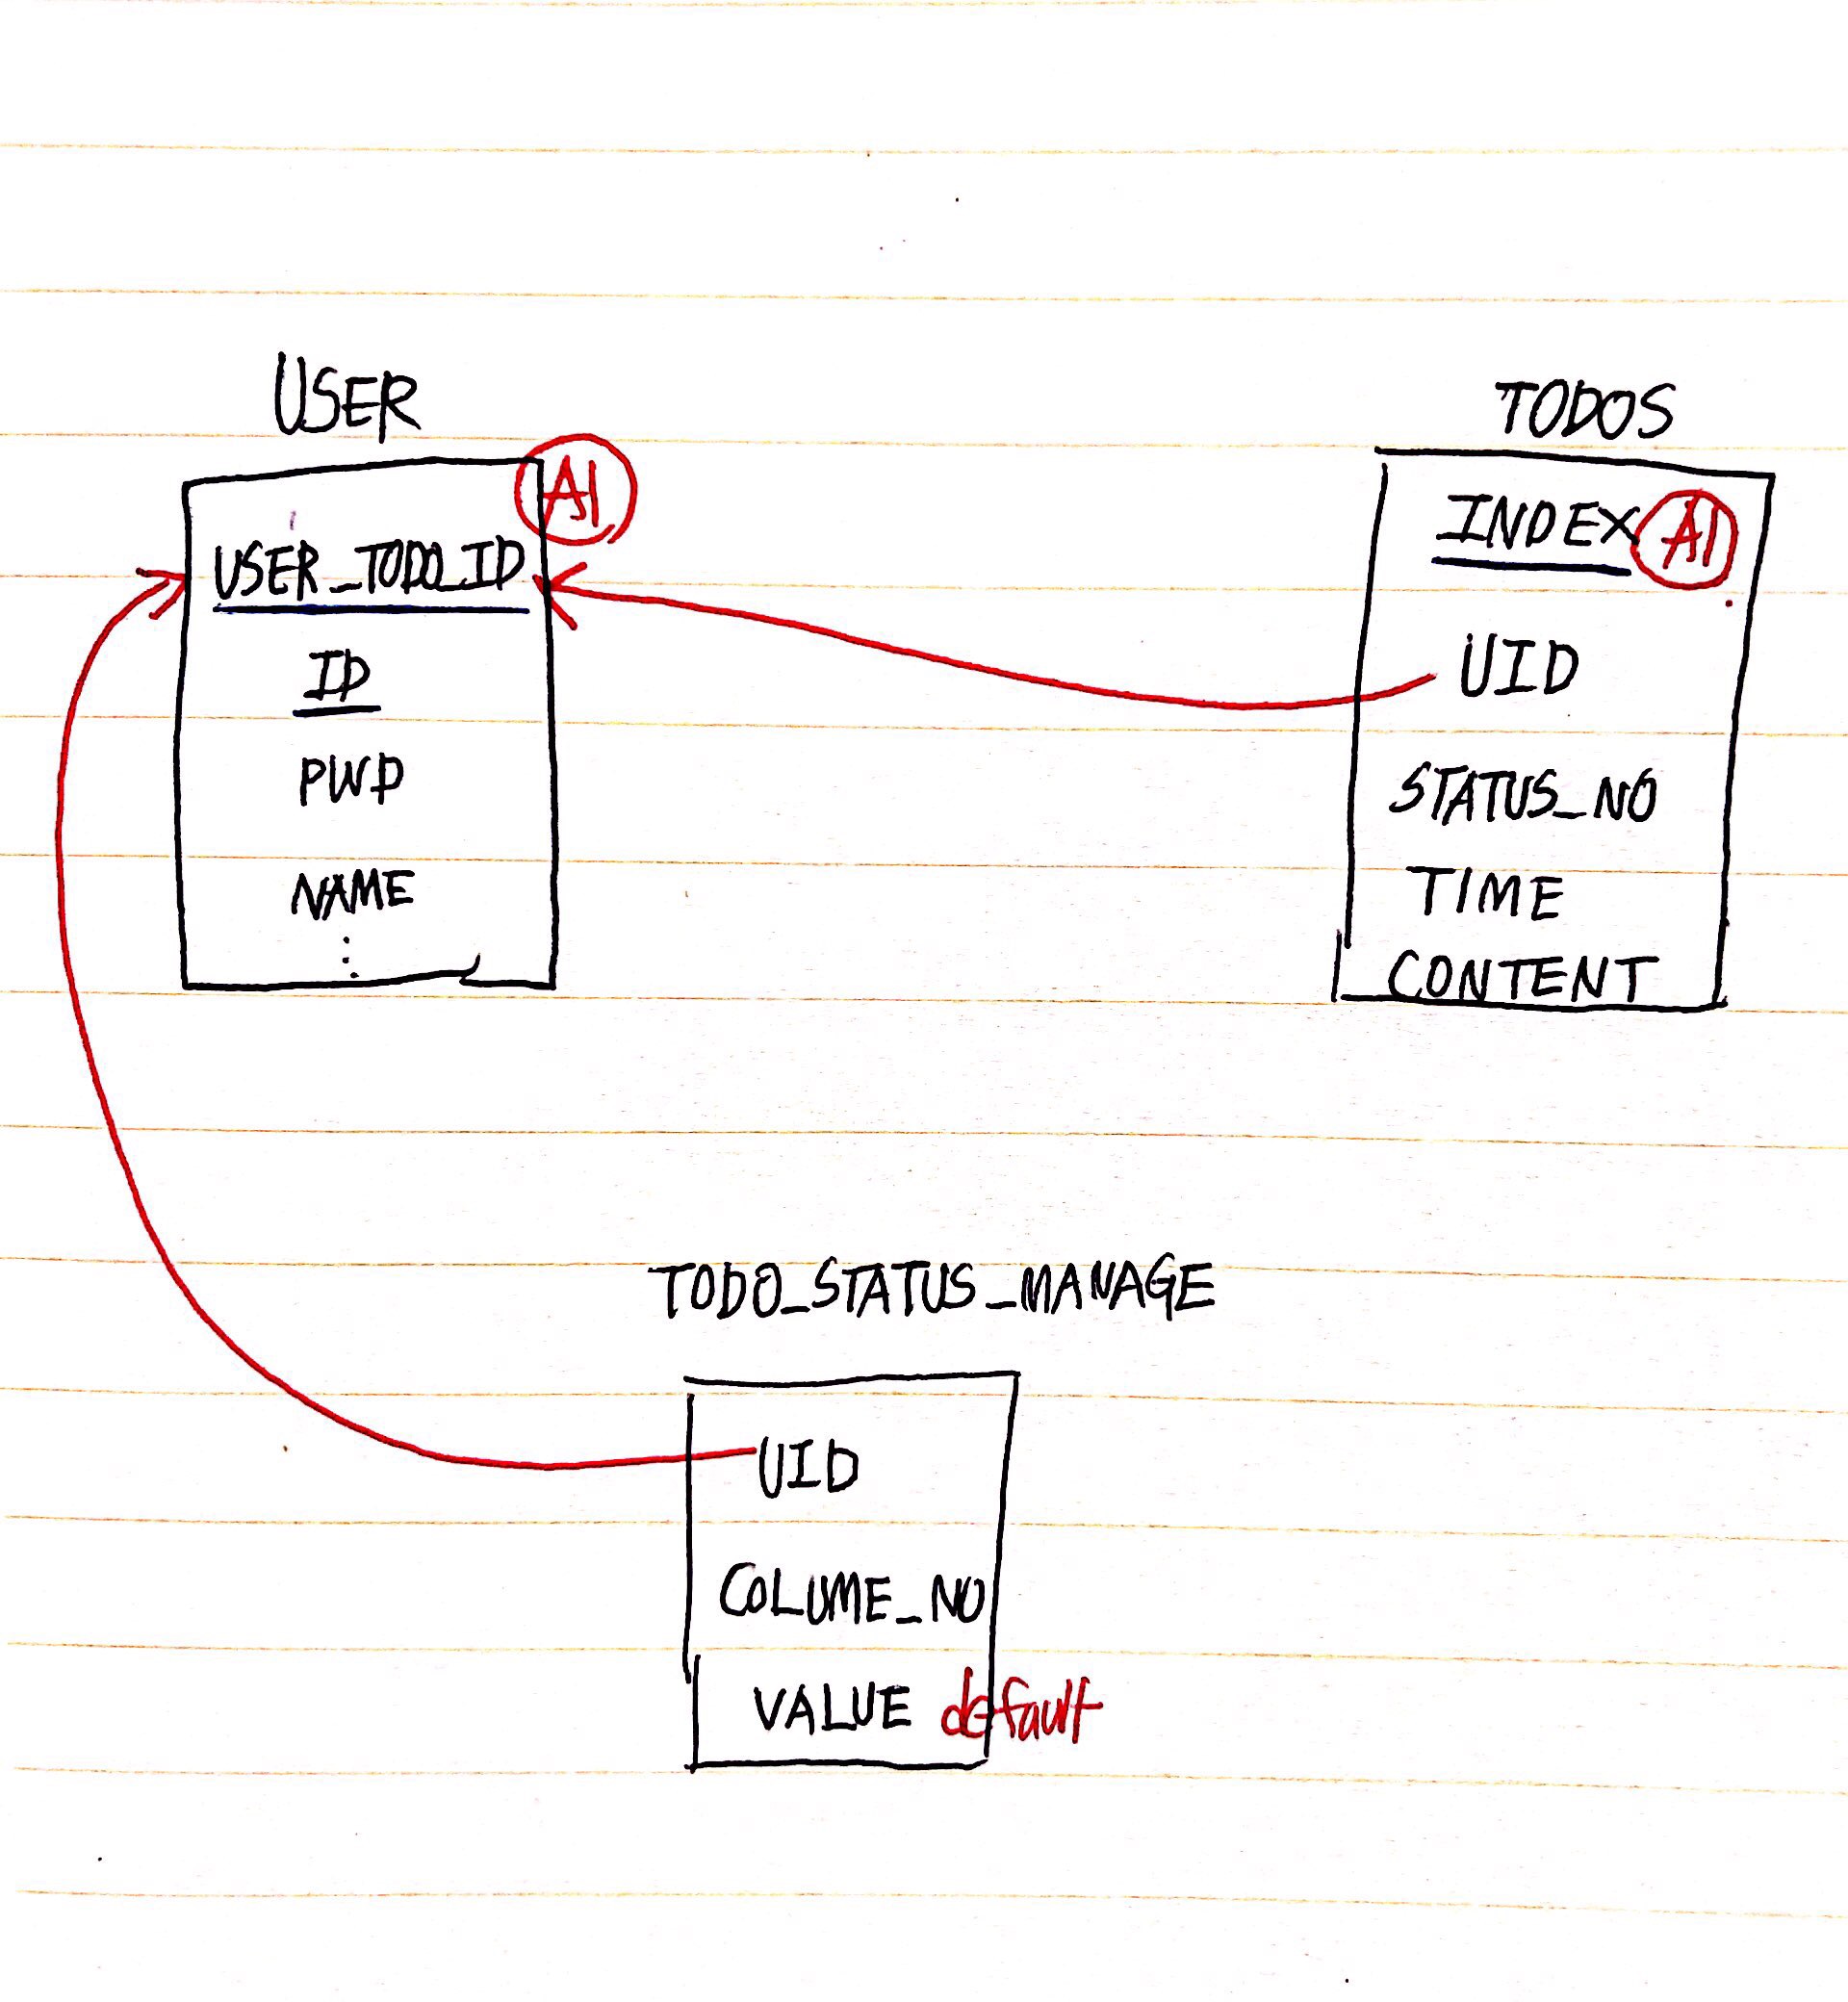 USER
AI
USER_TODO_ID
ID
PWD
NAME
⋮
TODOS
INDEX AI
UID
STATUS_NO
TIME
CONTENT
TODO_STATUS_MANAGE
UID
COLUME_NO
VALUE default